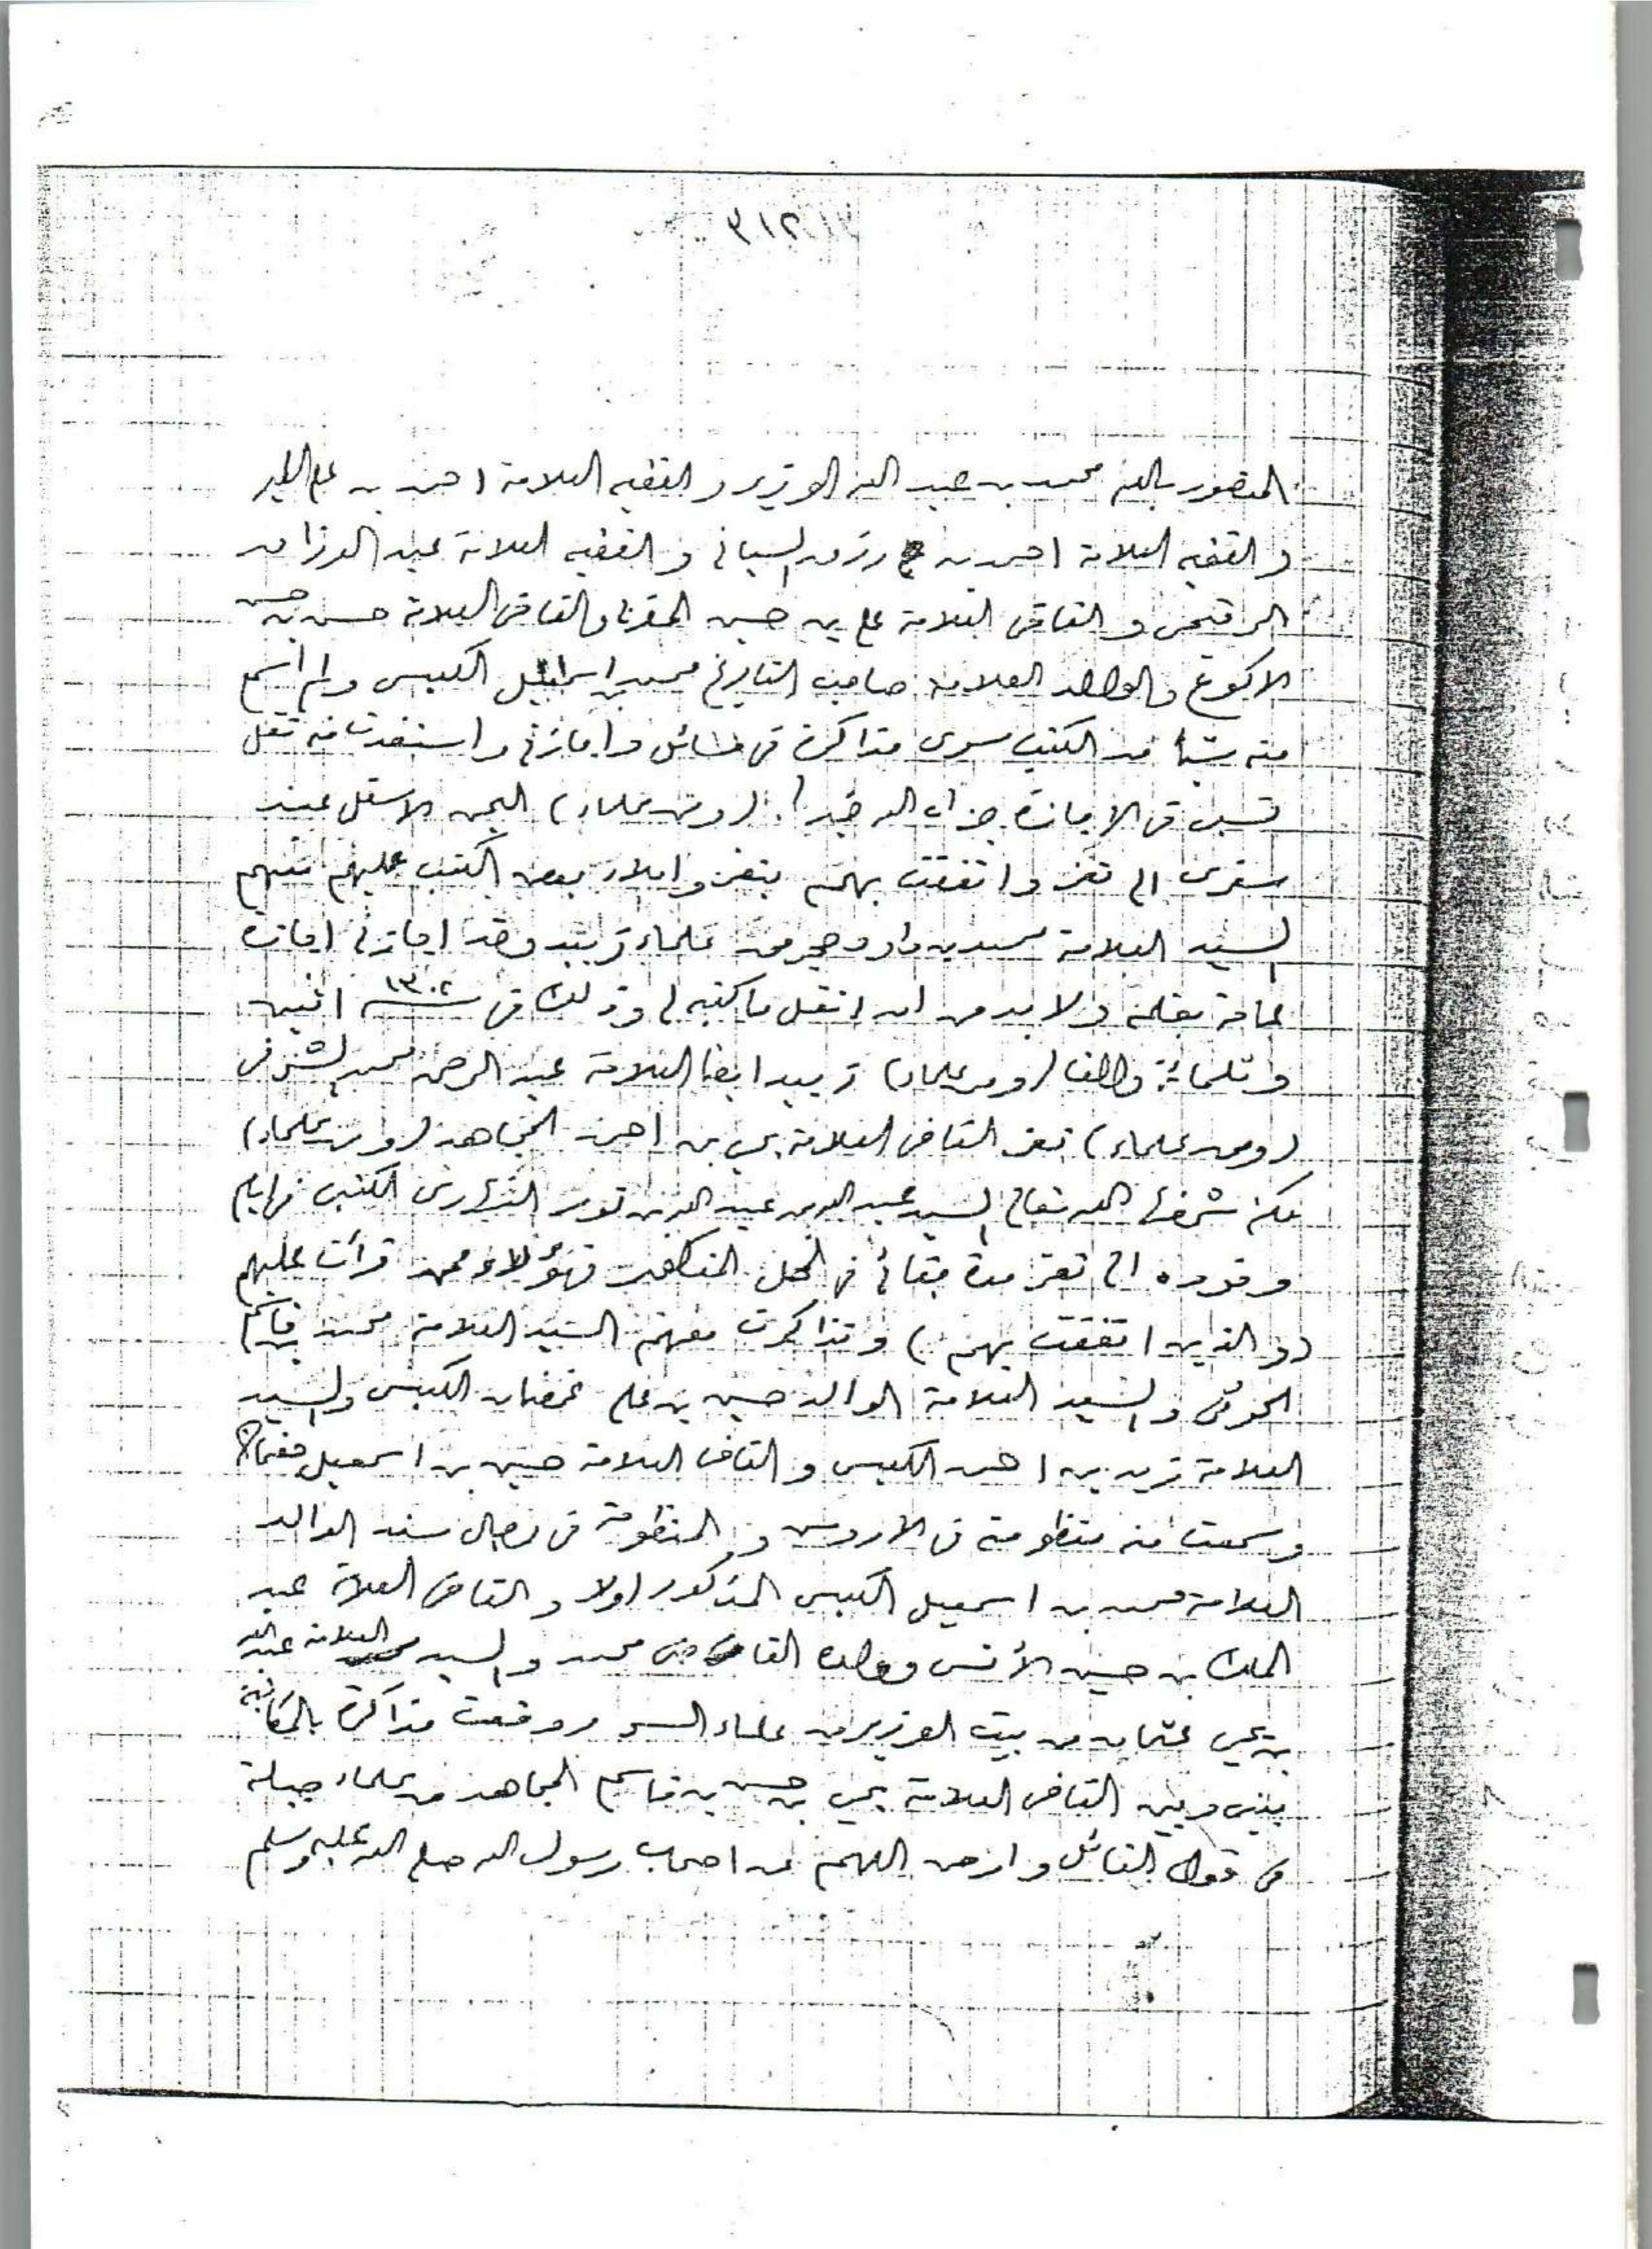 المنصور بالله محمد بن عبد الله الوزير والفقيه العلامة احمد بن علي الطير
والفقيه العلامة احمد بن رزق السياني والفقيه العلامة عبد الرزاق
الرقيحي والقاضي العلامة علي بن حسين المغربي والقاضي العلامة حسن بن حسن
الاكوع والوالد العلامة صاحب التاريخ محمد بن اسماعيل الكبسي ولم اسمع
منه شيأ من الكتب سوى مذاكرة في مسائل واجازني واستفدت منه نقل
في الاجازة جزاه الله خيرا. (ومن علماء) اليمن الاسفل عند
سفري الى تعز واتفقت بهم بتعز واملاء بعض الكتب عليهم منهم
السيد العلامة محمد بن داود حجر من علماء زبيد وقد اجازني اجازة
عامة بقلمه ولا بد من ان انقل ما كتبه لي وذلك في سنة ١٣٠٢ اثنين
وثلثمائة والف (ومن علماء) زبيد ايضا العلامة عبد الرحمن محمد الشرفي
(ومن علماء) تعز القاضي العلامة يحي بن احمد المجاهد (ومن علماء)
مكة شرفها الله تعالى السيد عبد الله بن عبد الله بن نور النهاري الكتبي في ايام
وفوده الى تعز مدة بقائي في المحل المذكور فهؤلاء ممن قرأت عليهم
(والذين اتفقت بهم) وتذاكرت معهم السيد العلامة محمد بن قاسم
الحوثي والسيد العلامة الوالد حسين بن علي غمضان الكبسي والسيد
العلامة زيد بن احمد الكبسي والقاضي العلامة حسين بن اسمعيل جغمان
وسمعت منه منظومته في والمنظومة في رجال سند الوالد
العلامة محمد بن اسمعيل الكبسي المذكور اولا والقاضي العلامة عبد
الملك بن حسين الأنسي وولده القاضي محمد والسيد العلامة عبد الله
بن يحي عثمان من بيت الوزير من علماء السر ووقعت مذاكرة بالمكاتبة
بيني وبين القاضي العلامة يحي بن حسن بن قاسم المجاهد من علماء جبلة
في قول القائل وارض اللهم عن اصحاب رسول الله صلى الله عليه وسلم